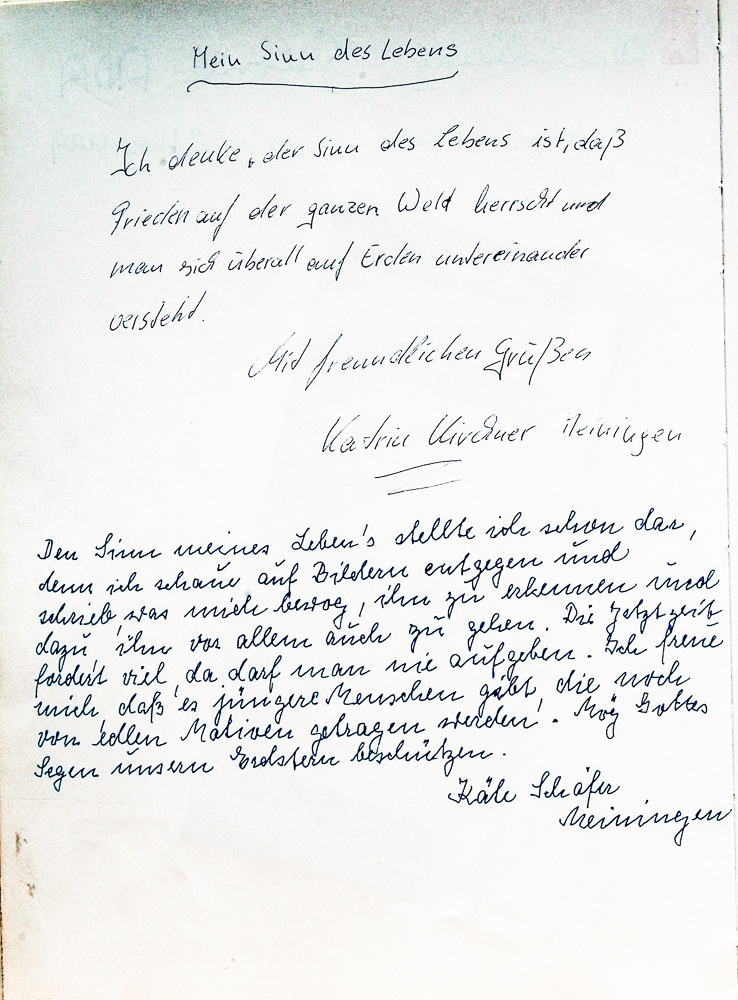 Mein Sinn des Lebens
Ich denke, der Sinn des Lebens ist, daß
Frieden auf der ganzen Welt herrscht und
man sich überall auf Erden untereinander
versteht.
Mit freundlichen Grüßen
Katrin Kirchner Meiningen
Den Sinn meines Leben's stellte ich schon dar,
denn ich schaue auf Bildern entgegen und
schrieb, was mich bewog, ihn zu erkennen und
dazu ihn vor allem auch zu gehen. Die Jetztzeit
fordert viel, da darf man nie aufgeben. Ich freue
mich, daß es jüngere Menschen gibt, die noch
von edlen Motiven getragen werden. Mög Gottes
Segen unsern Erdstern beschützen.
Käte Schäfer
Meiningen